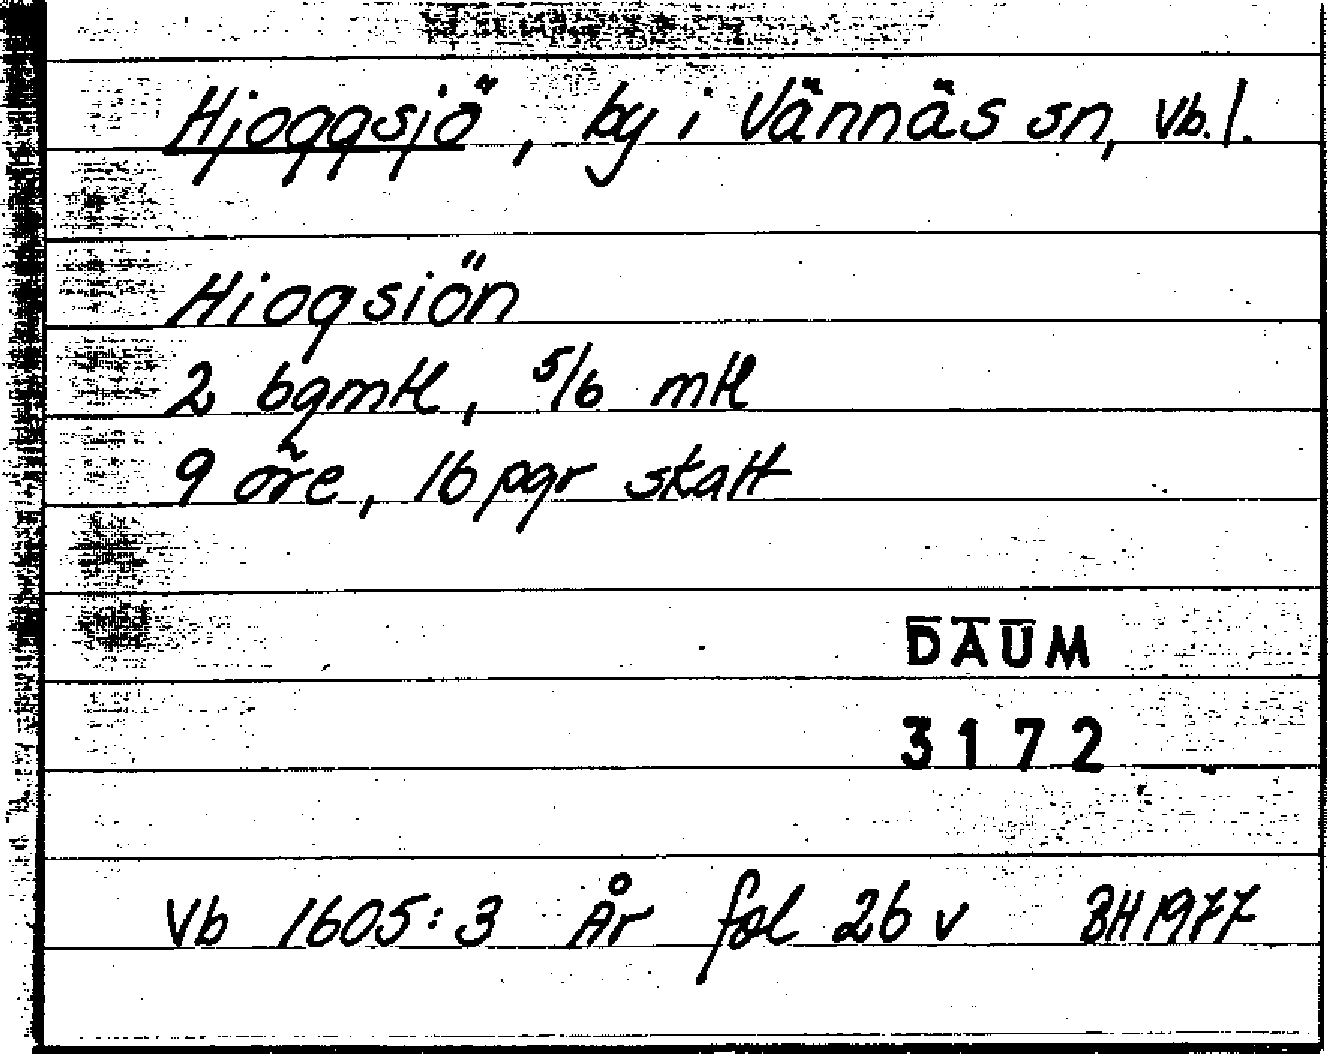 Hjoggsjö, by i Vännäs sn, Vb.l.
Hiogsiön
2 bgmtl, 5/6 mtl
9 öre, 16 pgr skatt
DAUM
3172
Vb 1605:3 År fol 26 v BH 1977